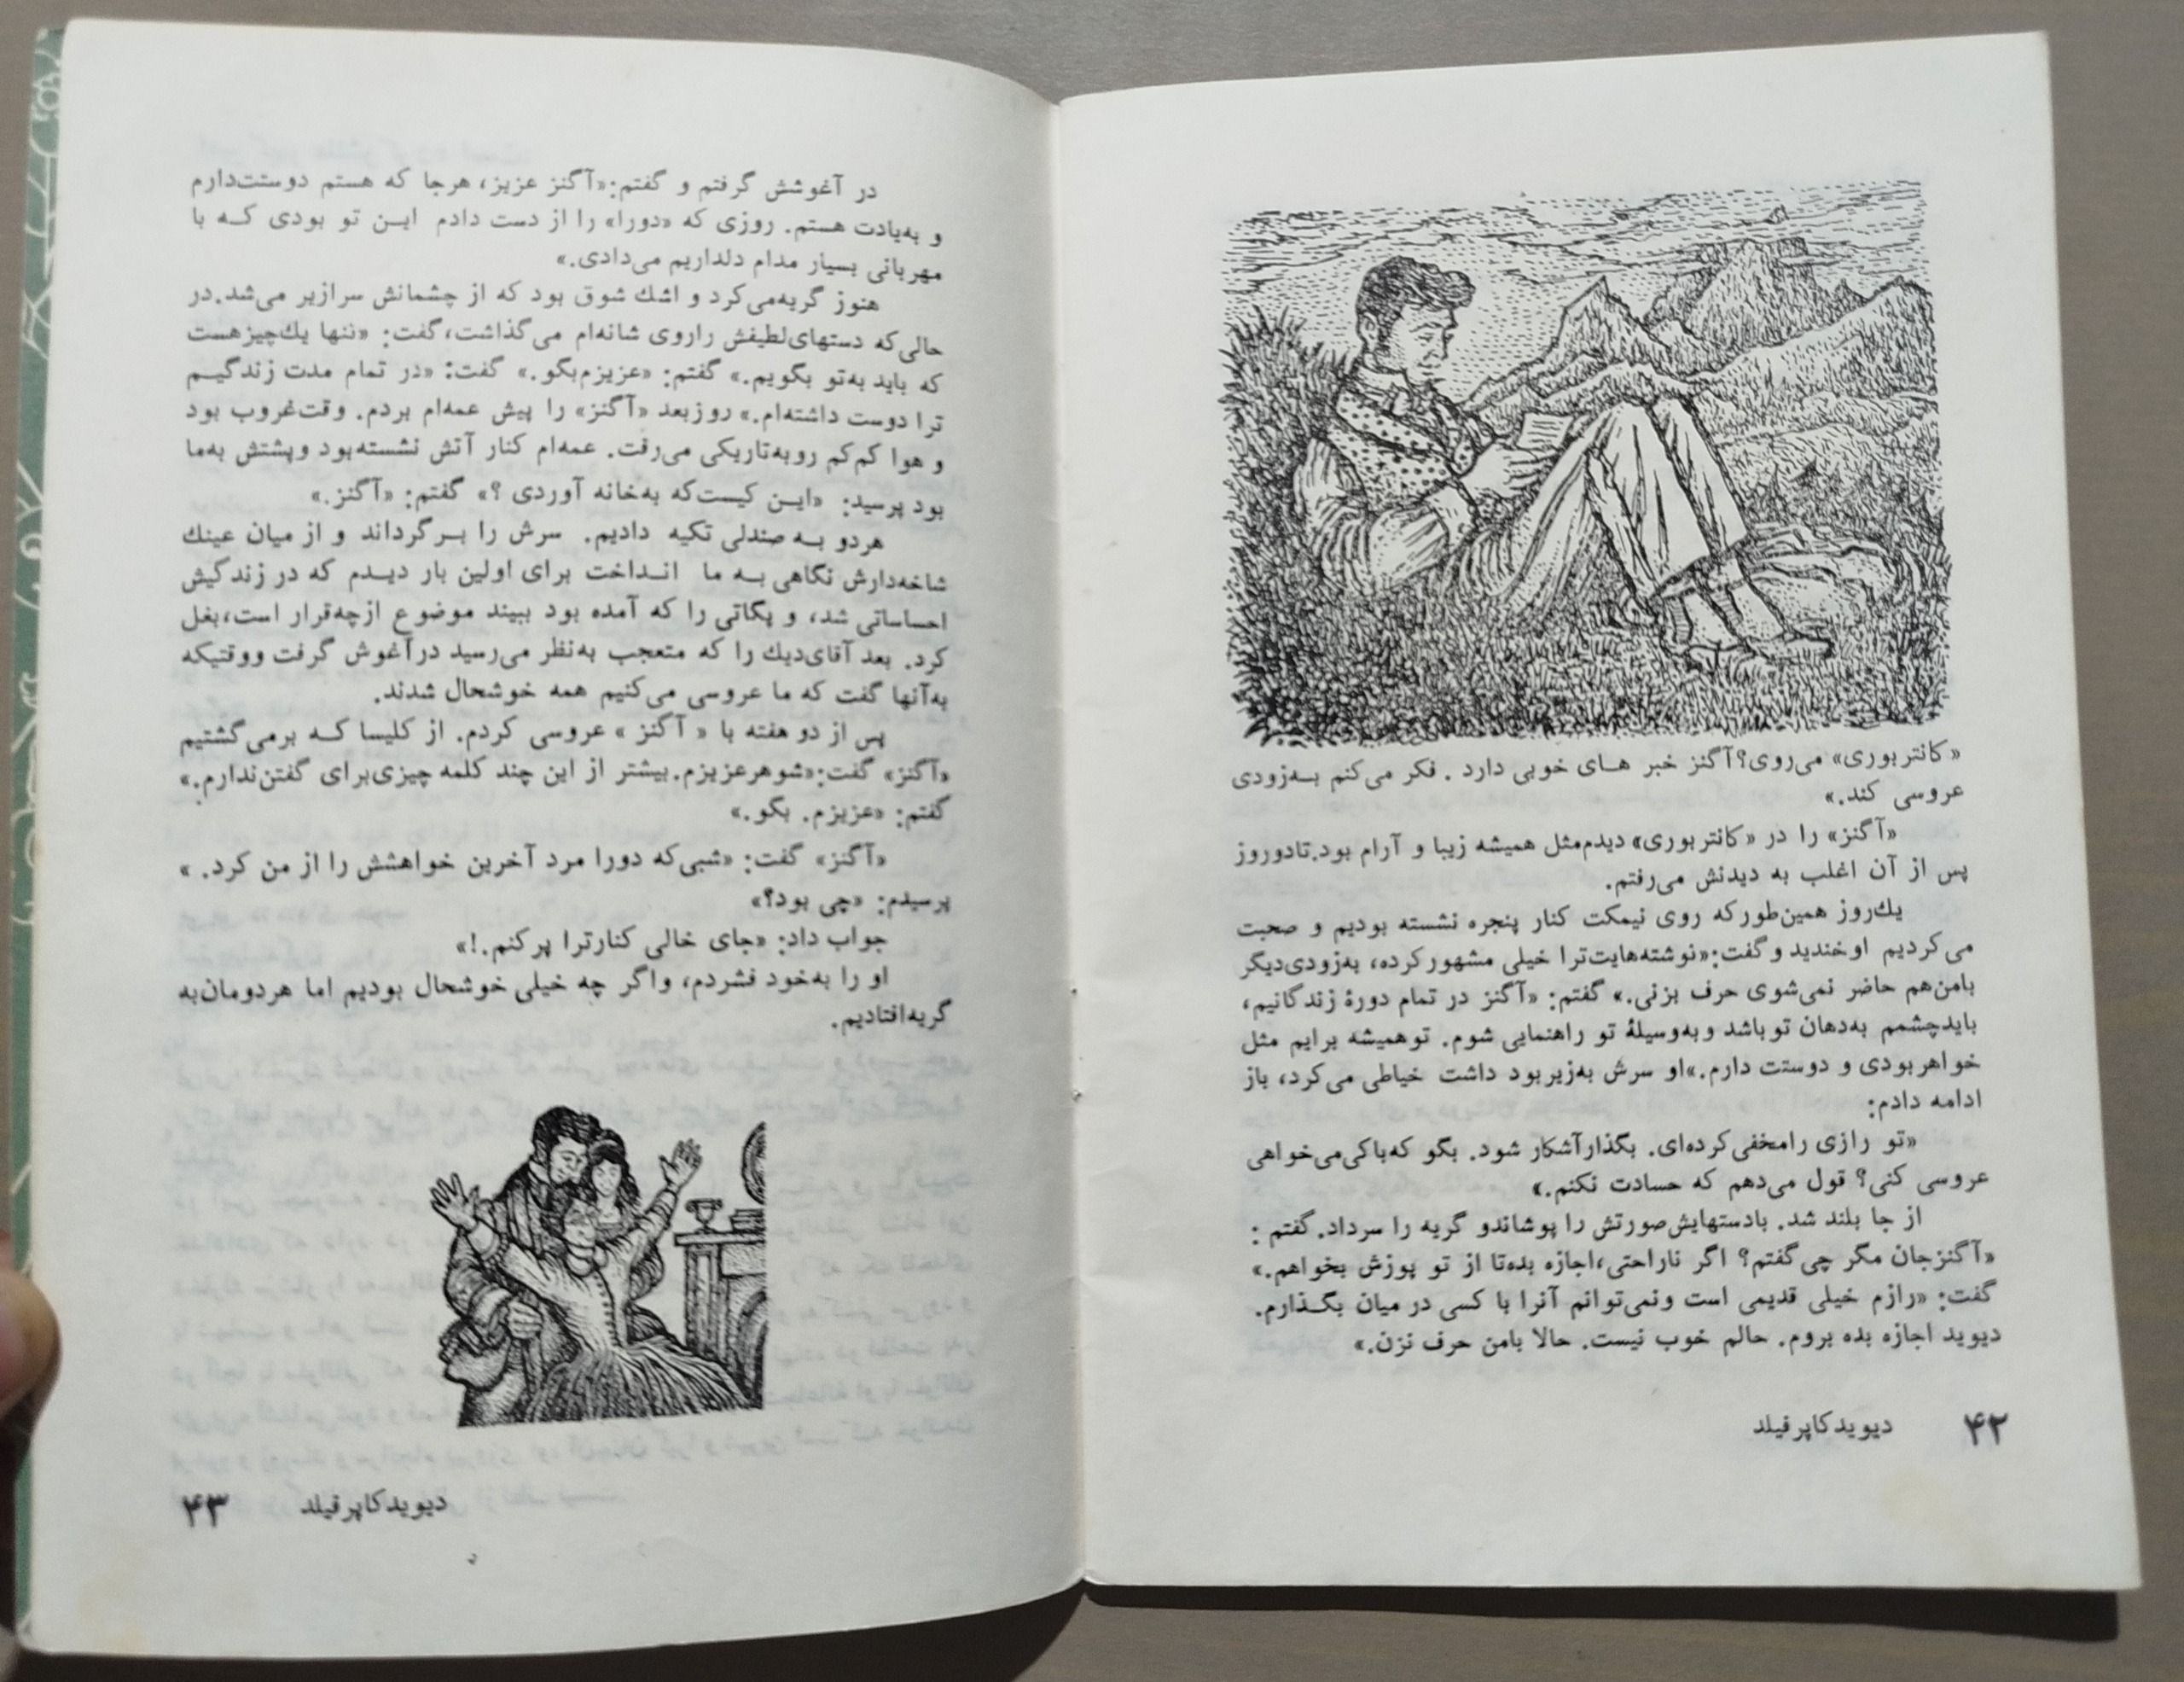 «کانتربوری» می‌روی؟ آگنز خبر های خوبی دارد . فکر می‌کنم بـه‌زودی
عروسی کند.»
«آگنز» را در «کانتربوری» دیدم‌مثل همیشه زیبا و آرام بود.تادوروز
پس از آن اغلب به دیدنش می‌رفتم.
یك‌روز همین‌طورکه روی نیمکت کنار پنجره نشسته بودیم و صحبت
می‌کردیم او خندید و گفت:«نوشته‌هایت‌ترا خیلی مشهورکرده، به‌زودی‌دیگر
بامن‌هم حاضر نمی‌شوی حرف بزنی.» گفتم: «آگنز در تمام دورۀ زندگانیم،
بایدچشمم به‌دهان توباشد وبه‌وسیلۀ تو راهنمایی شوم. توهمیشه برایم مثل
خواهربودی و دوستت دارم.»او سرش به‌زیربود داشت خیاطی می‌کرد، باز
ادامه دادم:
«تو رازی رامخفی‌کرده‌ای. بگذارآشکار شود. بگو که‌باکی‌می‌خواهی
عروسی کنی؟ قول می‌دهم که حسادت نکنم.»
از جا بلند شد. بادستهایش‌صورتش را پوشاندو گریه را سرداد. گفتم :
«آگنزجان مگر چی‌گفتم؟ اگر ناراحتی،اجازه بده‌تا از تو پوزش بخواهم.»
گفت: «رازم خیلی قدیمی است ونمی‌توانم آنرا با کسی در میان بگـذارم.
دیوید اجازه بده بروم. حالم خوب نیست. حالا بامن حرف نزن.»
۴۲ دیویدکاپرفیلد
در آغوشش گرفتم و گفتم:«آگنز عزیز، هرجا که هستم دوستت‌دارم
و به‌یادت هستم. روزی که «دورا» را از دست دادم ایـن تو بودی کـه با
مهربانی بسیار مدام دلداریم می‌دادی.»
هنوز گریه‌می‌کرد و اشك شوق بود که از چشمانش سرازیر می‌شد.در
حالی‌که دستهای‌لطیفش راروی شانه‌ام می‌گذاشت،گفت: «تنها یك‌چیزهست
که باید به‌تو بگویم.» گفتم: «عزیزم‌بگو.» گفت: «در تمام مدت زندگیـم
ترا دوست داشته‌ام.» روزبعد «آگنز» را پیش عمه‌ام بردم. وقت‌غروب بود
و هوا کم‌کم روبه‌تاریکی می‌رفت. عمه‌ام کنار آتش نشسته‌بود وپشتش به‌ما
بود پرسید: «ایـن کیست‌که به‌خانه آوردی ؟» گفتم: «آگنز.»
هردو بـه صندلی تکیه دادیم. سرش را بـرگرداند و از میان عینك
شاخه‌دارش نگاهی بـه ما انـداخت برای اولین بار دیـدم که در زندگیش
احساساتی شد، و پگاتی را که آمده بود ببیند موضوع ازچه‌قرار است،بغل
کرد. بعد آقای‌دیك را که متعجب به‌نظر می‌رسید درآغوش گرفت ووقتیکه
به‌آنها گفت که ما عروسی می‌کنیم همه خوشحال شدند.
پس از دو هفته با « آگنز » عروسی کردم. از کلیسا کـه برمی‌گشتیم
«آگنز» گفت:«شوهرعزیزم.بیشتر از این چند کلمه چیزی‌برای گفتن‌ندارم.»
گفتم: «عزیزم. بگو.»
«آگنز» گفت: «شبی‌که دورا مرد آخرین خواهشش را از من کرد. »
پرسیدم: «چی بود؟»
جواب داد: «جای خالی کنارترا پرکنم.!»
او را به‌خود فشردم، واگر چه خیلی خوشحال بودیم اما هردومان‌به
گریه‌افتادیم.
دیویدکاپرفیلد ۴۳